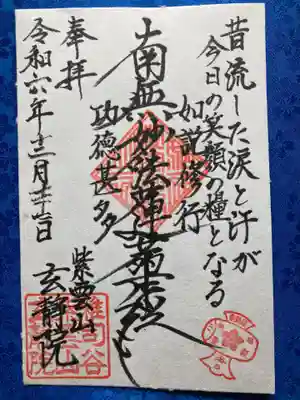 昔流した涙と汗が
今日の笑顔の糧となる
如説修行
南無妙法蓮華経
功徳甚多
奉拝
令和六年十二月十二日
紫雲山
玄静院
雑司谷